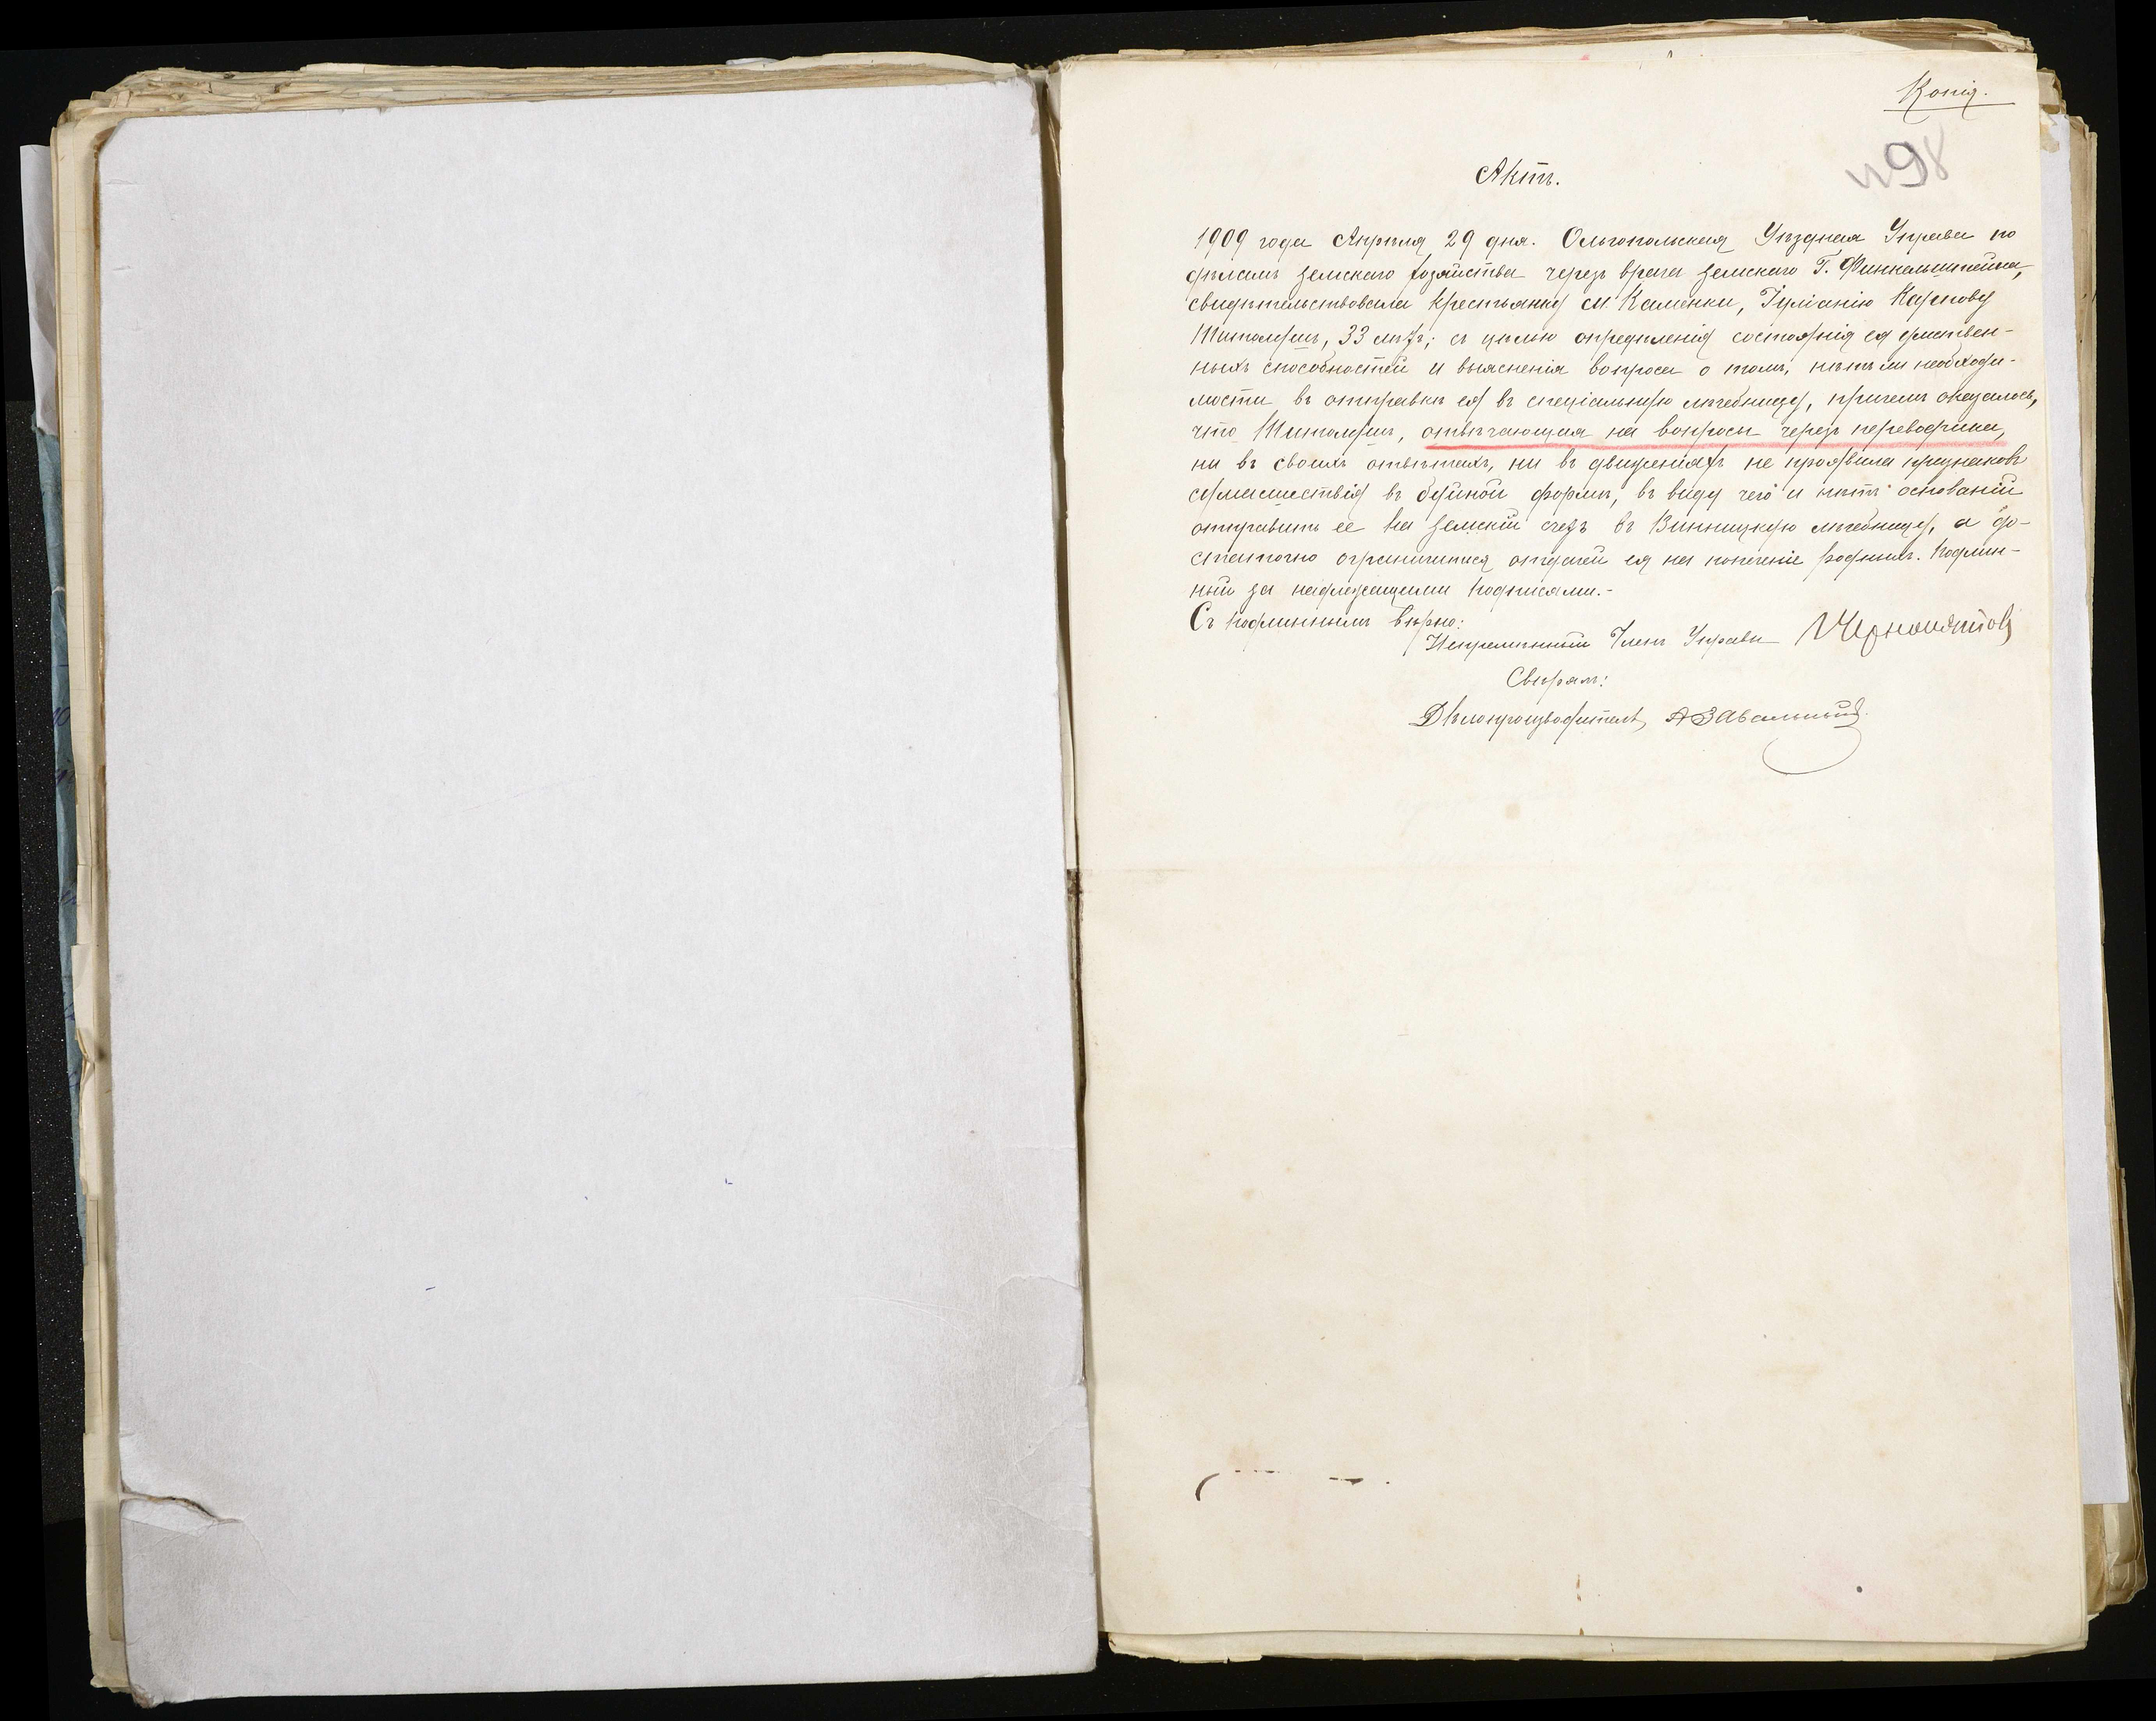 Копія.
98
Актъ.
1909 года Апрѣля 29 дня. Ольгопольская Уѣздная Управа по
дѣламъ земскаго хозяйства черезъ врача земскаго Г. Финкельштейна,
свидѣтельствовала крестьянку м. Каменки, Іуліанію Карпову
33 лѣтъ; съ цѣлью опредѣленія состоянія ея умствен-
ныхъ способностей и выясненія вопроса о томъ, нѣтъ ли необходи-
мости въ отправкѣ ея въ спеціальную лѣчебницу, причемъ оказалось,
что отвѣчающая на вопросы черезъ переводчика,
ни въ своихъ отвѣтахъ, ни въ движеніяхъ не проявила признаковъ
сумасшествія въ буйной формѣ, въ виду чего и нѣтъ основаній
отправить ее на земскій счетъ въ Винницкую лѣчебницу, а до-
статочно ограничиться отдачей ея на попеченіе родныхъ. Подлин-
ный за надлежащими подписями.-
Съ подлиннымъ вѣрно:
Непремѣнный Членъ Управы
Свѣрялъ:
Дѣлопроизводитель